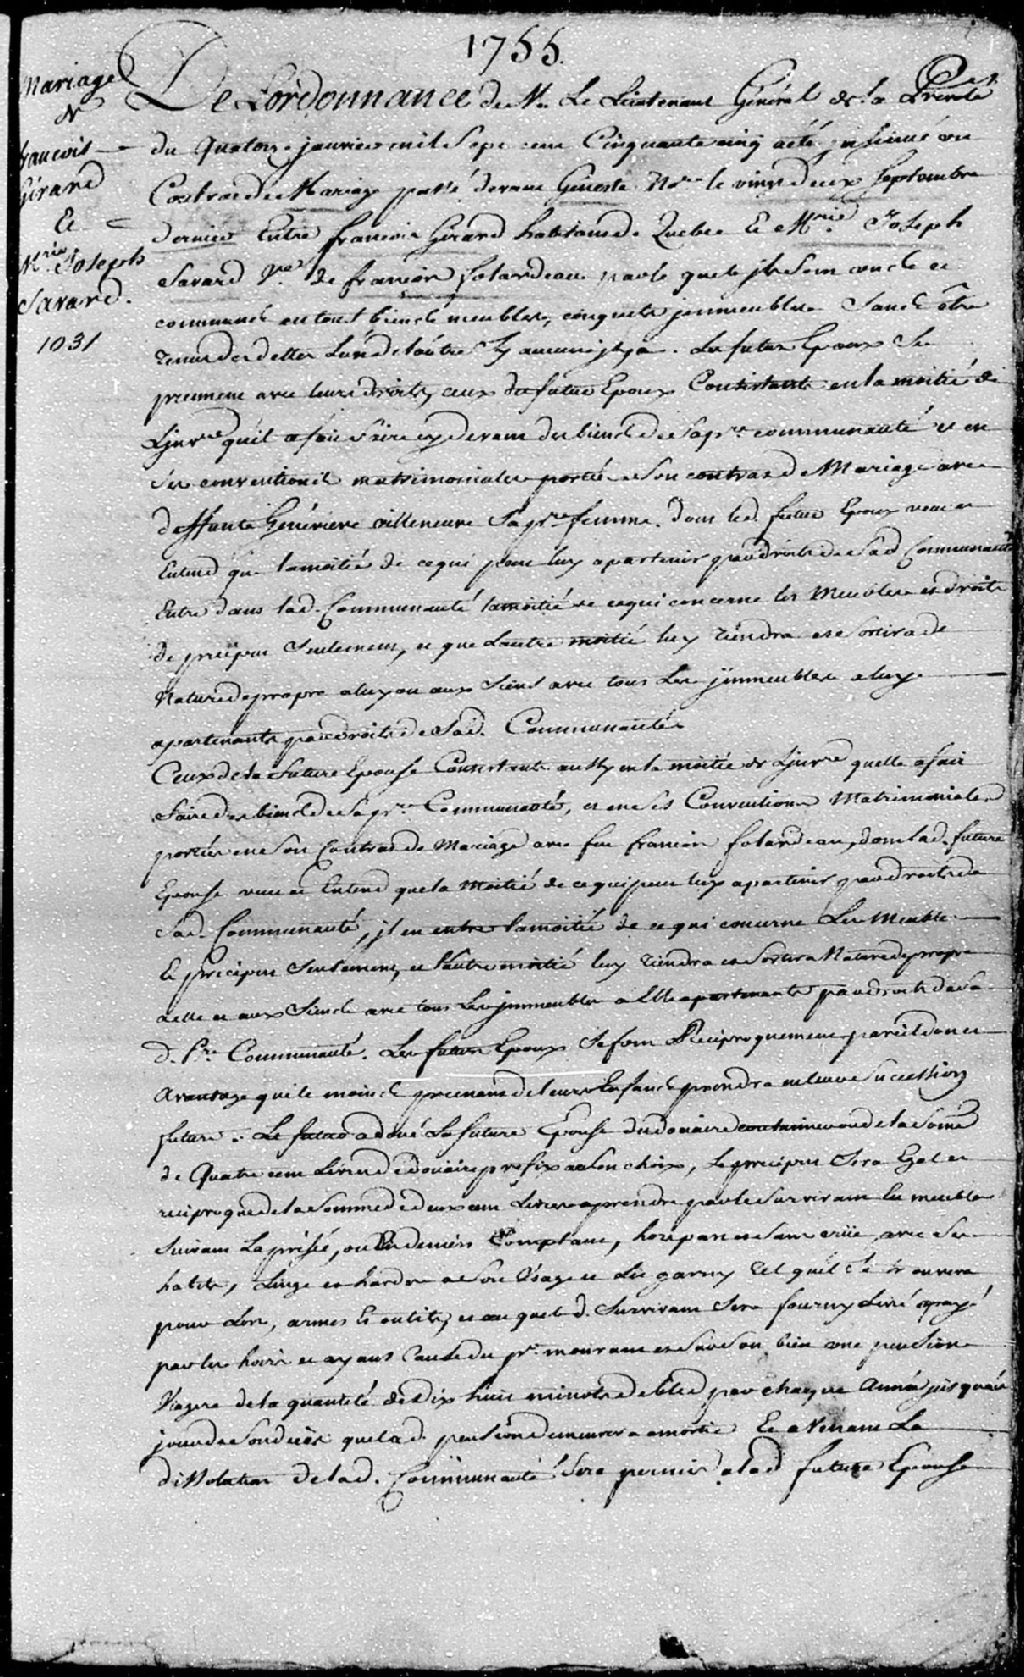 1755.
Mariage
N
francois
Girard
Et
M.rie Joseph
Savard.
1031
De Lordonnance de M. Le Lieutenant Général de la Prevoté
du Quatorze janvier mil Sept cent Cinquante cinq a été insinué un
Contrac de Mariage passé devant Genest No.re le vingt deux Septembre
dernier Entre francois Girard habitant de Quebec Et M.rie Joseph
Savard V.ve de francois Folardeau par le quel ils Sont uns et
communs en tous biens meubles, conquets jmmeubles Sans être
tenus des dettes Lun de lautre Sy aucuns il y a. Les futurs Epoux Se
prennent avec leurs droits, ceux du futur Epoux Consistante en la moitié de
Linv.re quil a fait faire cy devant des biens de Sa pr.e communauté et en
Ses conventions matrimoniales portée en Son contrac de Mariage avec
deffunte Genevieve villeneuve Sa pr.e femme. dont led. futur Epoux veut et
Entend que la moitié de ce qui peut luy apartenir par droits de Sad Communauté
Entre dans lad. Communauté la moitié de ce qui concerne les Meubles et droits
de preciput Seulement, et que Lautre moitié luy tiendra et Sortira de
Nature de propre a luy ou aux Siens avec tous Les jmmeubles a luy
apartenants par droits de Sad. Communauté
Ceux de la future Epouse Consistante aussy en la moitié de Linv.re quelle a fait
faire des biens de Sa pr.e Communauté, et en Ses Conventions Matrimoniales
portées en Son Contrac de Mariage avec feu francois folardeau, dont lad. future
Epouse veut et Entend que la Moitié de ce qui peut luy apartenir par droits de
Sad. Communauté, il en entre la moitié de ce qui concerne Les Meubles
le preciput Seulement, et lautre moitié luy tiendra et Sortira Nature de propre
a elle et aux Siens avec tous Les jmmeubles a Elle apartenants par droits de Sa
d. Pr.e Communauté. Les futurs Epoux Se font Reciproquement pareil don et
Avantage que le moins prenant de leurs Enfans prendra en leur Succession
future. Le futur a doué La future Epouse du douaire coutumier ou de la Some
de Quatre cent Livres de douaire prefix a Son choix, Le preciput Sera Egal et
reciproque de la Somme de deux cent Livres a prendre par le Survivant en meubles
Suivant La prisée, ou En deniers Comptans, hors part et Sans criie, avec Ses
habits, Linge et hardes a Son Usage et Lit garny tel quil Se trouvera
pour Lors, armes et outils, et au quel d. Survivant Sera fourny Livré et payé
par les hoirs et ayans Cause du pr. mourant et Sur Son bien une pension
Viagere de la quantité de Dix huit minots de bled par chaque Année jusquau
jour de Son deces que lad. pension demeurera amortie Et avenant La
dissolution de lad. Communauté Sera permis a lad future Epouse